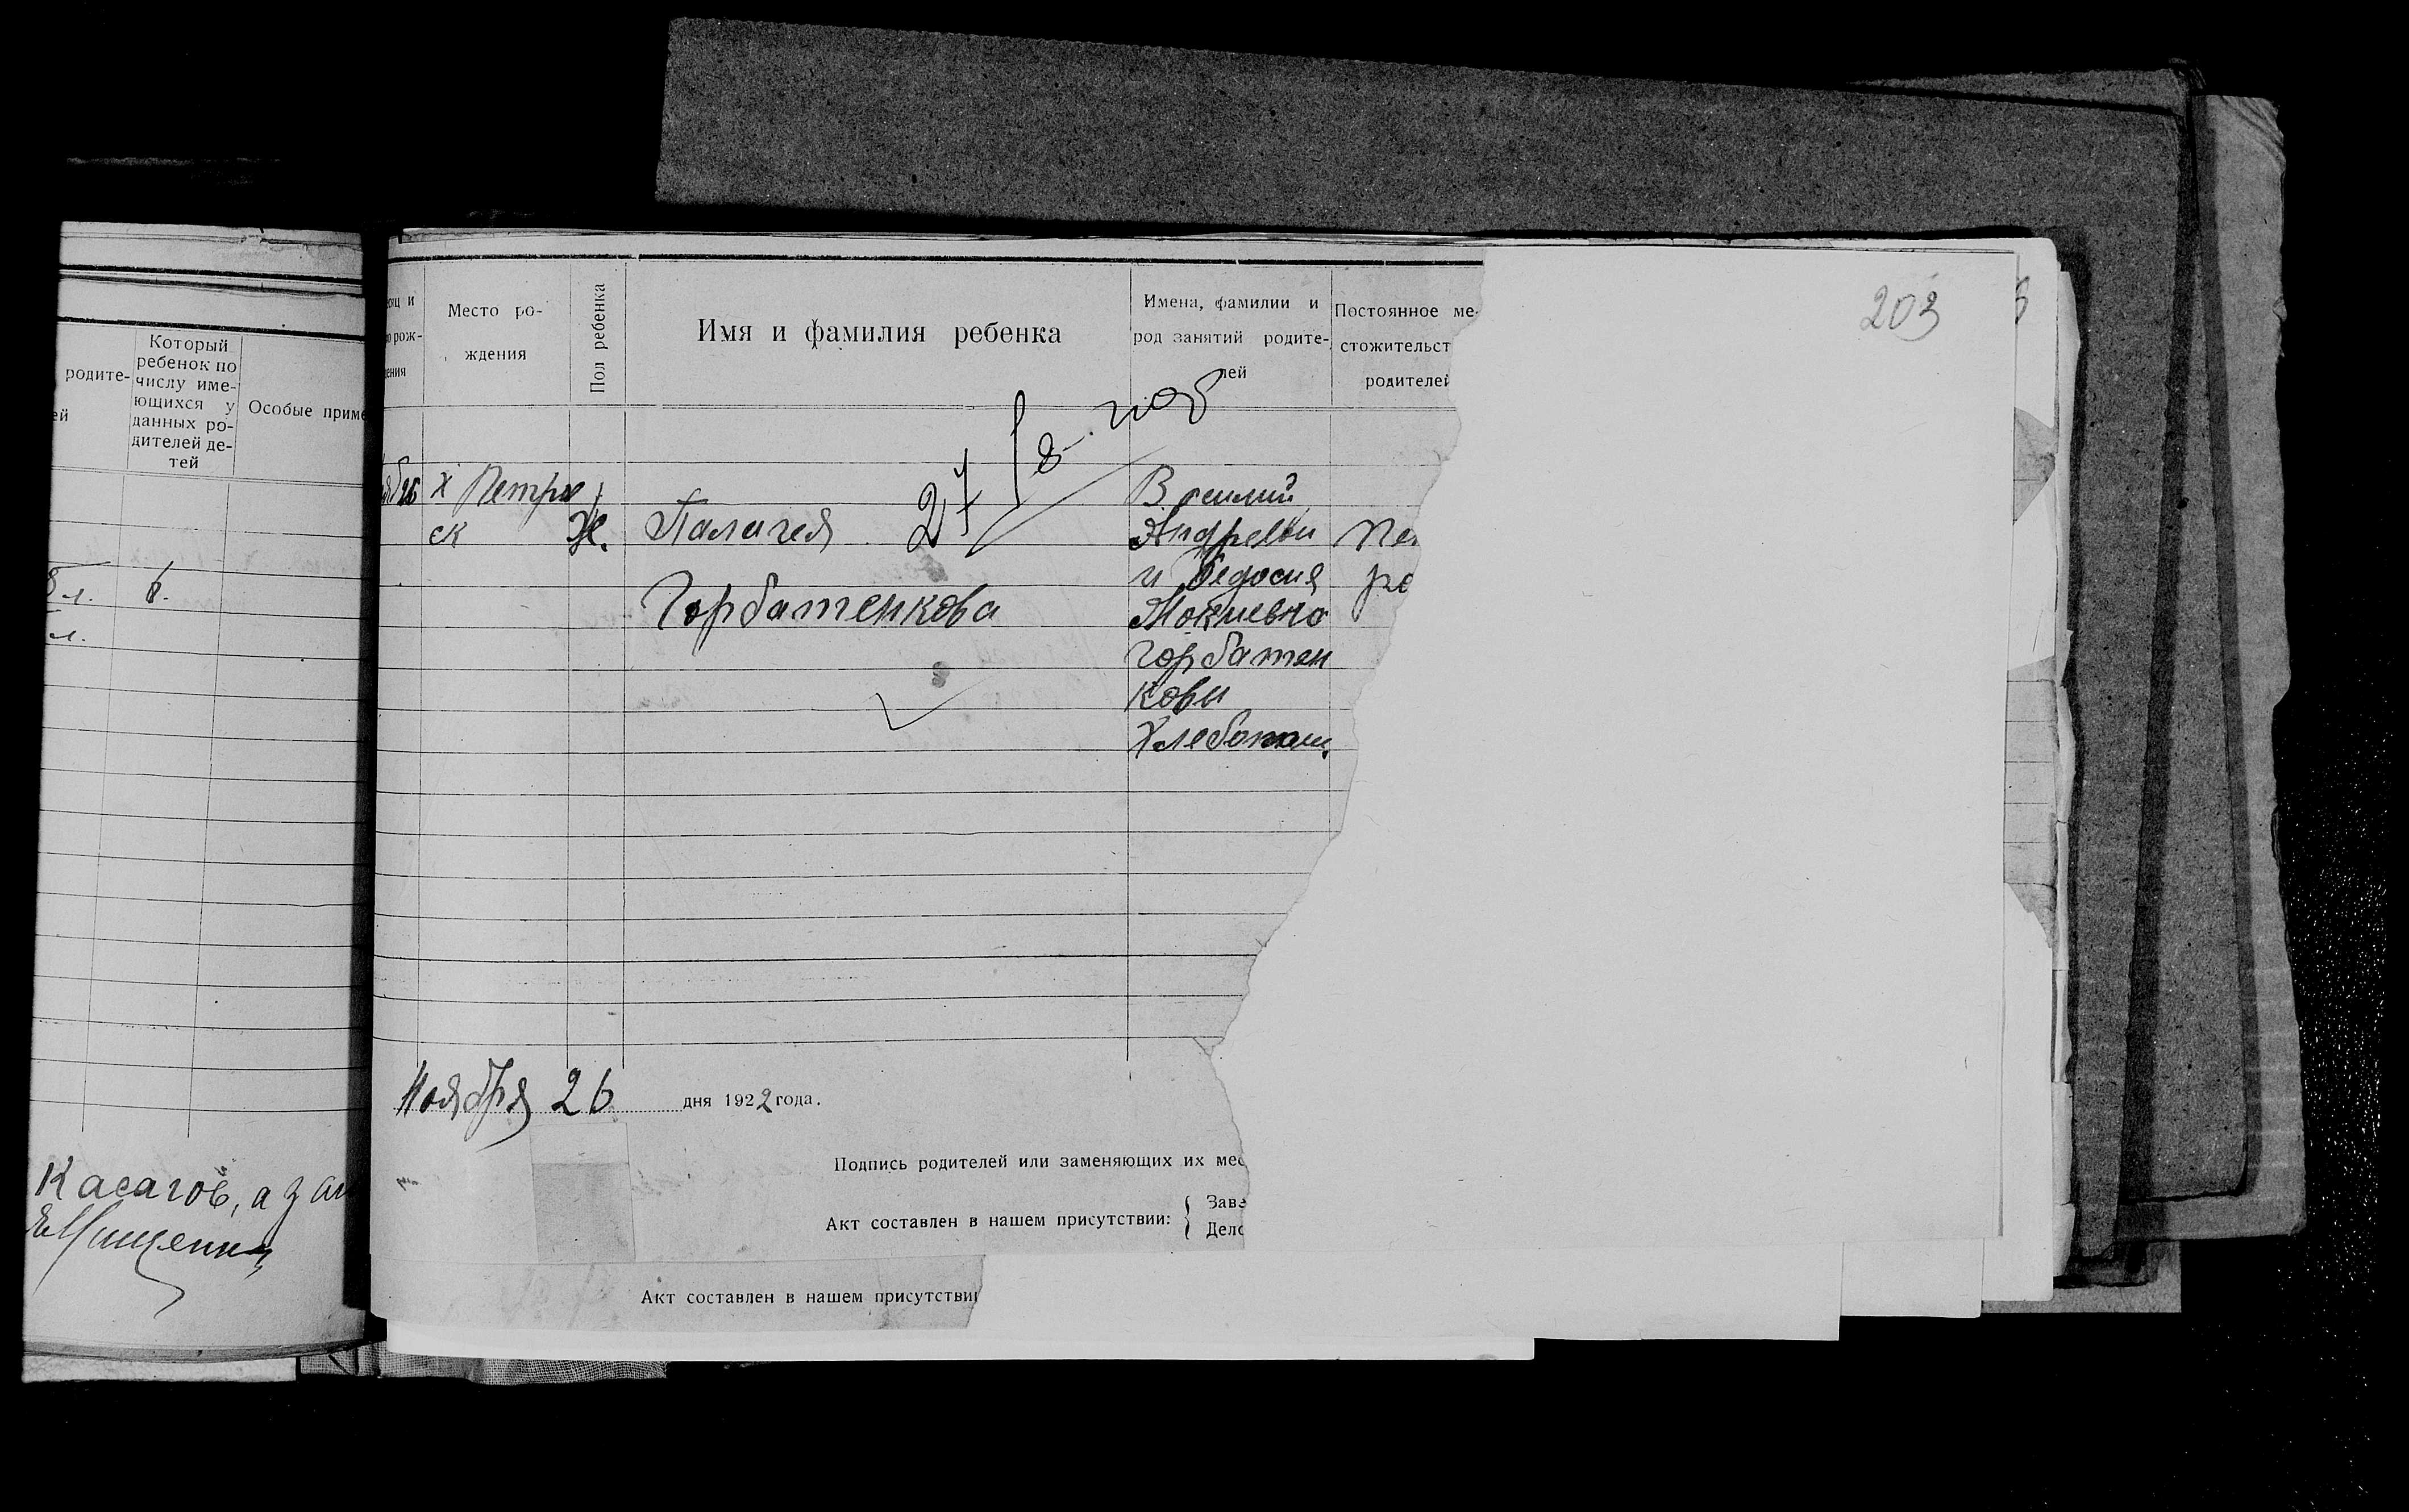 родите-
ей
Который
ребенок по
числу име-
ющихся у
данных ро-
дителей де-
тей
Особые приме
л.
6.
л.
Касагов, а за
203
сяц и
о рож-
ения
Место ро-
ждения
Пол ребенка
Имя и фамилия ребенка
Имена, фамилии и
род занятий родите-
лей
Постоянное ме-
стожительст
родителей
27 / 8- нов
х Петров
ск
Ж.
Палагея
Горбатенкова
Василий
Андреевич
и Федосия
Мокиевна
Горбатен
ковы
Хлебопаш.
Пе
ро
Ноября 26 дня 1922 года.
Подпись родителей или заменяющих их мес
Акт составлен в нашем присутствии:
Заве
Дело
Акт составлен в нашем присутстви